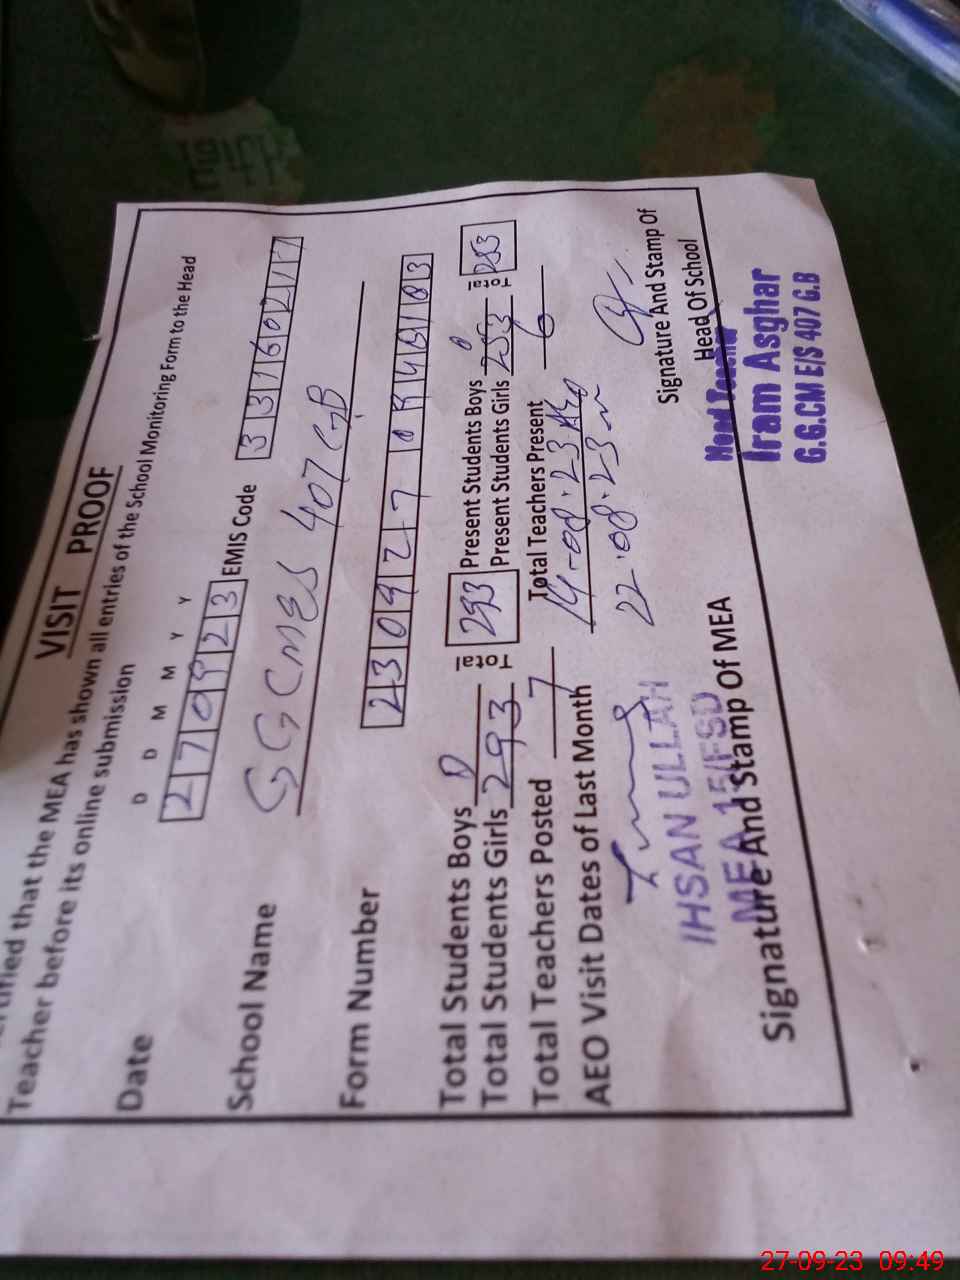 VISIT PROOF
that the MEA has shown all entries of the School Monitoring Form to the Head
Teacher before its online submission
D D M M Y Y
Date 270923 EMIS Code
School Name GGCMES 407 GB
Form Number
Total Students Boys 0 Total 293 Present Students Boys 0 Total 253
Total Students Girls 293 Present Students Girls 253
Total Teachers Posted 7 Total Teachers Present 6
AEO Visit Dates of Last Month 14-08-23
22-08-23
IHSAN ULLAH
MEA 15/FSD
Signature And Stamp Of MEA
Signature And Stamp Of
Head Of School
Head Teacher
Iram Asghar
G.G.CM E/S 407 G.B
27-09-23 09:49